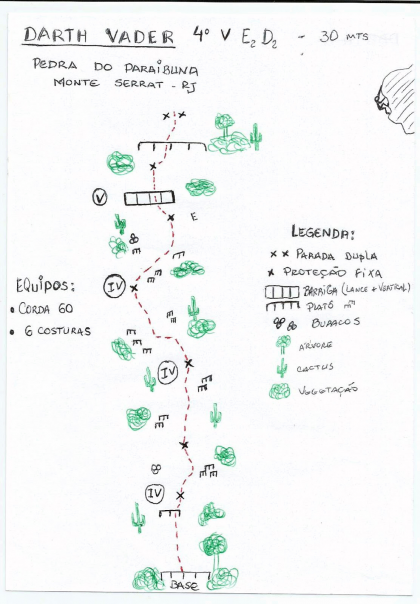 DARTH VADER 4º V E2 D2 - 30 MTS
PEDRA DO PARAIBUNA
MONTE SERRAT - RJ
V
E
IV
IV
IV
BASE
EQUIPOS:
• CORDA 60
• 6 COSTURAS
LEGENDA:
x x PARADA DUPLA
x PROTEÇÃO FIXA
BARRIGA (LANCE + VERTICAL)
PLATÔ
BURACOS
ÁRVORE
CACTUS
VEGETAÇÃO